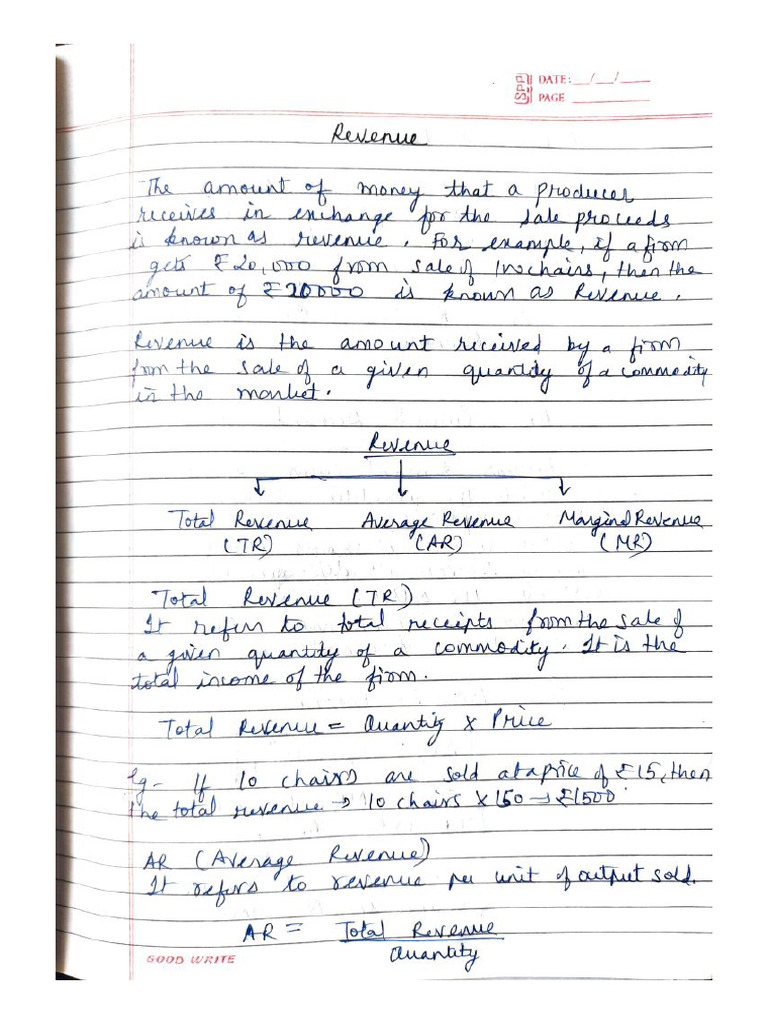 SPP
DATE: __/__/____
PAGE ________
Revenue
The amount of money that a producer
receives in exchange for the sale proceeds
is known as revenue. For example, if a firm
gets ₹20,000 from sale of 100 chairs, then the
amount of ₹20000 is known as Revenue.
Revenue is the amount received by a firm
from the sale of a given quantity of a commodity
in the market.
Revenue
Total Revenue Average Revenue Marginal Revenue
(TR) (AR) (MR)
Total Revenue (TR)
It refers to total receipts from the sale of
a given quantity of a commodity. It is the
total income of the firm.
Total Revenue = Quantity x Price
Eg- If 10 chairs are sold at a price of ₹15, then
the total revenue → 10 chairs x 150 → ₹1500
AR (Average Revenue)
It refers to revenue per unit of output sold.
AR = Total Revenue
Quantity
GOOD WRITE